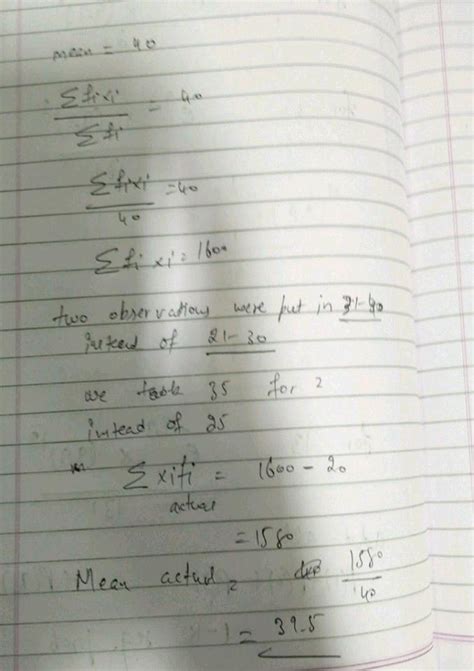 mean = 40
Σfixi / Σfi = 40
Σfixi / 40 = 40
Σfi xi = 1600
two observations were put in 31-40
instead of 21-30
we took 35 for 2
instead of 25
Σxifi = 1600 - 20
actual
= 1580
Mean actual = 1580 / 40
= 39.5